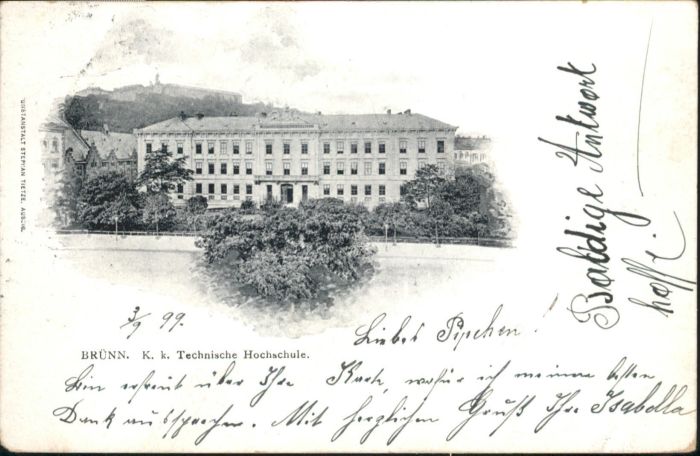 KUNSTANSTALT STEPHAN TIETZE, AUSSIG.
3/9 99.
BRÜNN. K. k. Technische Hochschule.
Liebes Pipchen!
Bin erfreut über Ihre Karte, wofür ich meinen besten
Dank ausspreche. Mit herzlichen Gruß Ihre Isabella
Baldige Antwort
hoffe.